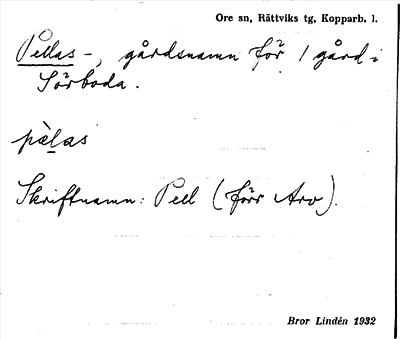 Ore sn, Rättviks tg, Kopparb. l.
Pellas -, gårdsnamn för 1 gård i
Sörboda.
pèlas
Skriftnamn: Pell (förr Arv).
Bror Lindén 1932